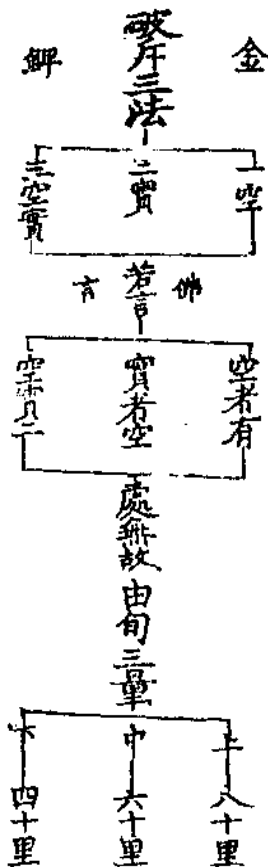 金
破斥三法
鞞
一空
二實
三空實
佛
若言
言
空者有
實者空
空實二
處無故
由旬三量
上
八十里
中
六十里
下
四十里